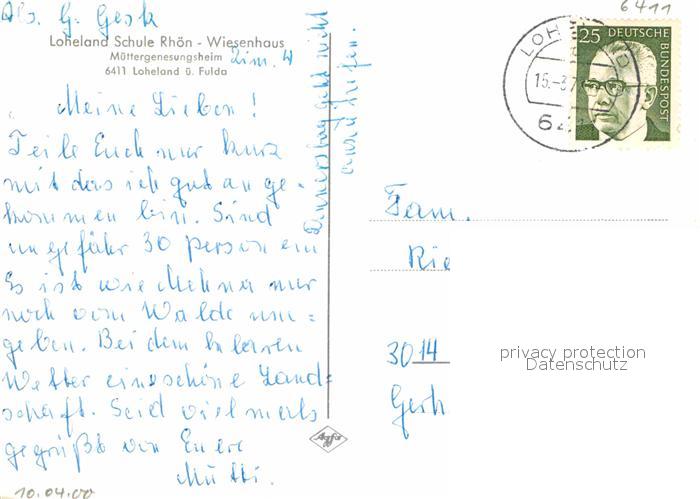 Abs. G. Gerk
Loheland Schule Rhön - Wiesenhaus
Müttergenesungsheim
6411 Loheland ü. Fulda
Zim. 4
Meine Lieben!
Teile Euch nur kurz
mit das ich gut ange-
kommen bin. Sind
ungefähr 30 Person ein
Es ist wie nur
noch vom Walde um=
geben. Bei dem klaren
Wetter eine schöne Land=
schaft. Seid vielmals
gegrüßt von Eurer
Mutti.
Donnerstag geht nicht
anzurufen.
10.04.00
6411
LOHELAND
15.-3.7
64
25 DEUTSCHE
BUNDESPOST
Fam.
Rie
3014
Gerh
privacy protection
Datenschutz
Agfa